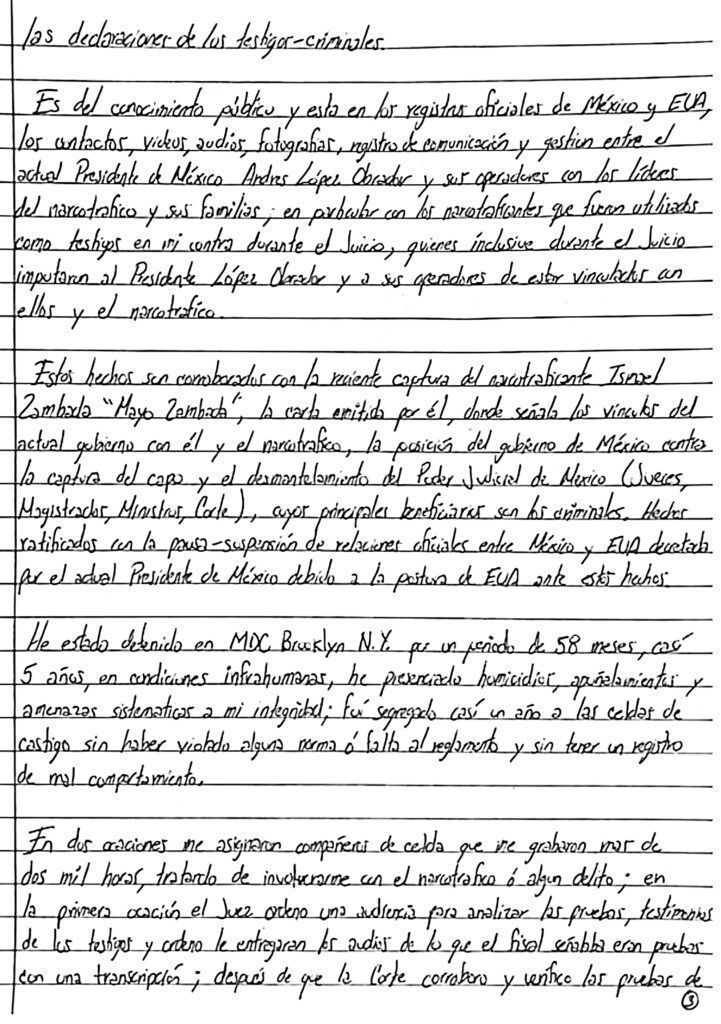 las declaraciones de los testigos-criminales.
Es del conocimiento público y esta en los registros oficiales de México y EUA,
los contactos, videos, audios, fotografias, registro de comunicación y gestion entre el
actual Presidente de México Andres López Obrador y sus operadores con los lideres
del narcotrafico y sus familias; en particular con los narcotraficantes que fueron utilizados
como testigos en mi contra durante el Juicio, quienes inclusive durante el Juicio
imputaron al Presidente López Obrador y a sus operadores de estar vinculados con
ellos y el narcotrafico.
Estos hechos son corroborados con la reciente captura del narcotraficante Ismael
Zambada "Mayo Zambada", la carta emitida por él, donde señala los vinculos del
actual gobierno con él y el narcotrafico, la posición del gobierno de México contra
la captura del capo y el desmantelamiento del Poder Judicial de México (Jueces,
Magistrados, Ministros, Corte), cuyos principales beneficiarios son los criminales. Hechos
ratificados con la pausa-suspensión de relaciones oficiales entre México y EUA decretada
por el actual Presidente de México debido a la postura de EUA ante estos hechos.
He estado detenido en MDC Brooklyn N.Y. por un periodo de 58 meses, casí
5 años, en condiciones infrahumanas, he presenciado homicidios, apuñalamientos y
amenazas sistematicas a mi integridad; fuí segregado casí un año a las celdas de
castigo sin haber violado alguna norma ó falta al reglamento y sin tener un registro
de mal comportamiento.
En dos ocaciones me asignaron compañeros de celda que me grabaron mas de
dos mil horas, tratando de involucrarme con el narcotrafico ó algun delito; en
la primera ocación el Juez ordeno una audiencia para analizar las pruebas, testimonios
de los testigos y ordeno le entregaran los audios de lo que el fiscal señalaba eran pruebas
con una transcripción; después de que la Corte corroboro y verifico las pruebas de
3